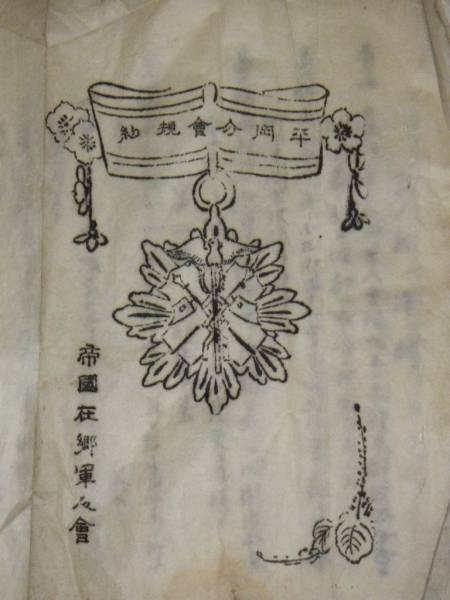 平岡分會規約
帝國在郷軍人會